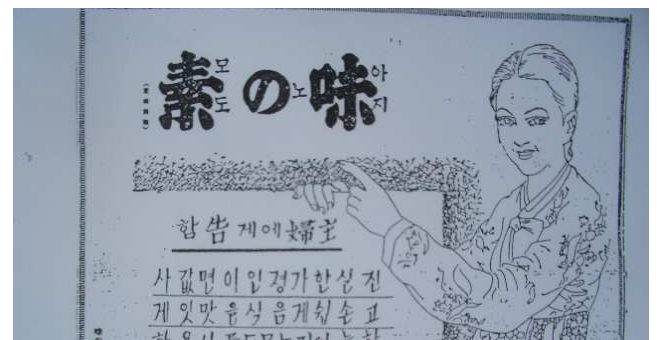 味の素
아지노모도
主婦에게告함
진실한가정인이면값사
고손쉽게음식을맛잇게